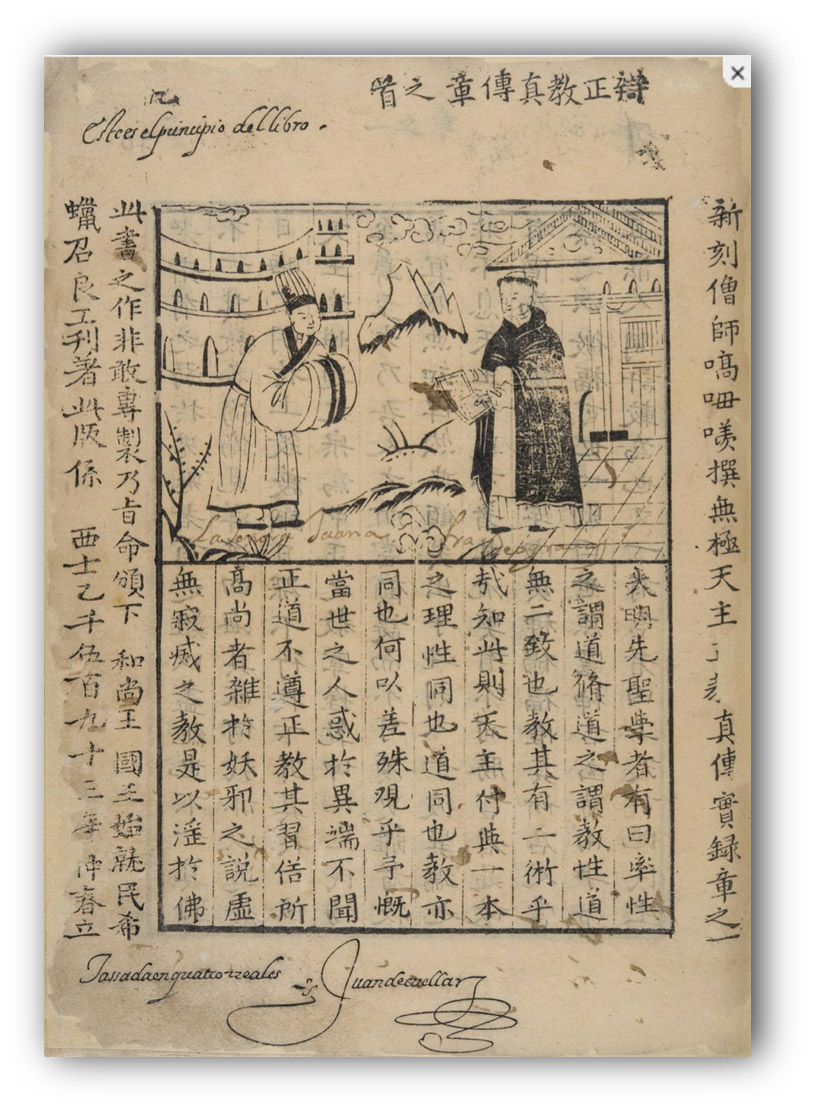 辯正教真傳章之首
Este es el principio del libro.
新刻僧師嗃呣撰無極天主 真傳實錄章之一
大明先聖學者有曰率性
之謂道脩道之謂教性道
無二致也教其有二術乎
哉知此則天主付與一本
之理性同也道同也教亦
同也何以差殊觀乎予慨
當世之人惑於異端不聞
正道不遵正教其習俗所
高尚者雜於妖邪之說虛
無寂滅之教是以滛於佛
此書之作非敢專製乃旨命頒下 和尚王 國王始就民希
蠟召良工刊著此版係 西士乙千伍百九十三年仲春立
Tassada en quatro reales
Juan de cuellar